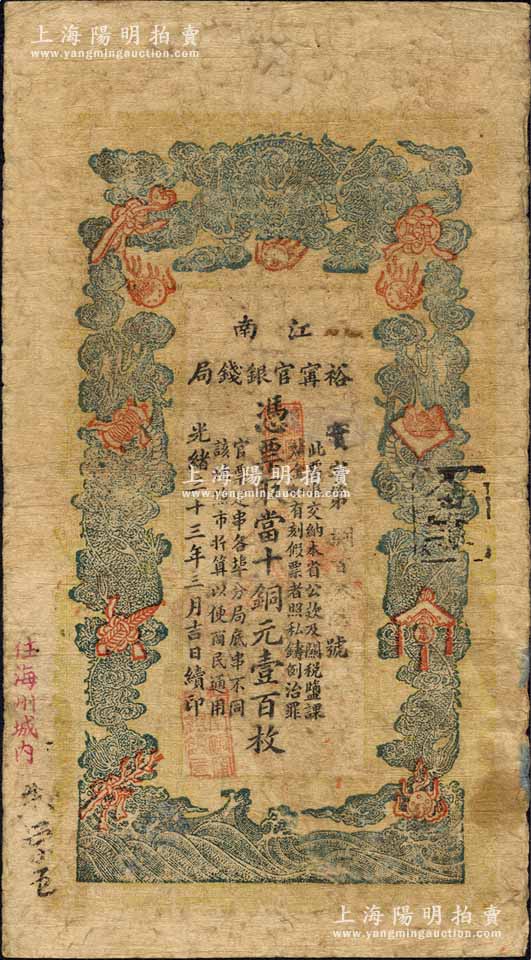 上海陽明拍賣
www.yangmingauction.com
江南
裕甯官銀錢局
號
此票准交納本省公款及關稅鹽課
有刻假票者照私鑄例治罪
憑票 當十銅元壹百枚
官 串各埠分局底串不同
該 市折算以便商民通用
光緒 十三年三月吉日續印
住海州城内
上海陽明拍賣
www.yangmingauction.com
上海陽明拍賣
www.yangmingauction.com